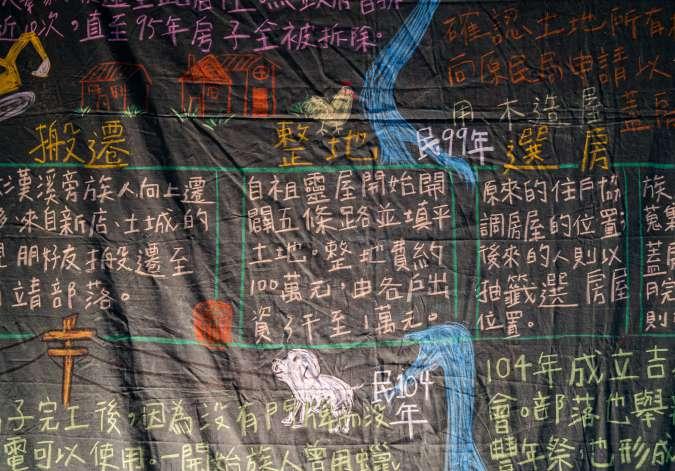 近10次,直至95年房子全被拆除。
確認土地所有
向原民局申請以
用木造屋
蓋
搬遷
整地
民99年
選房
漢溪旁族人向上遷
來自新店、土城的
朋好友搬遷至
靖部落。
自祖靈屋開始開
闢五條路並填平
土地。整地費約
100萬元,由各戶出
資3千至1萬元。
原來的住戶協
調房屋的位置;
後來的人則以
抽籤選房屋
位置。
族
蒐集
蓋
完
則
民104
年
子完工後,因為沒有門牌而沒
電可以使用。一開始族人曾用蠟
104年成立吉
會。部落也舉
豐年祭,也形成